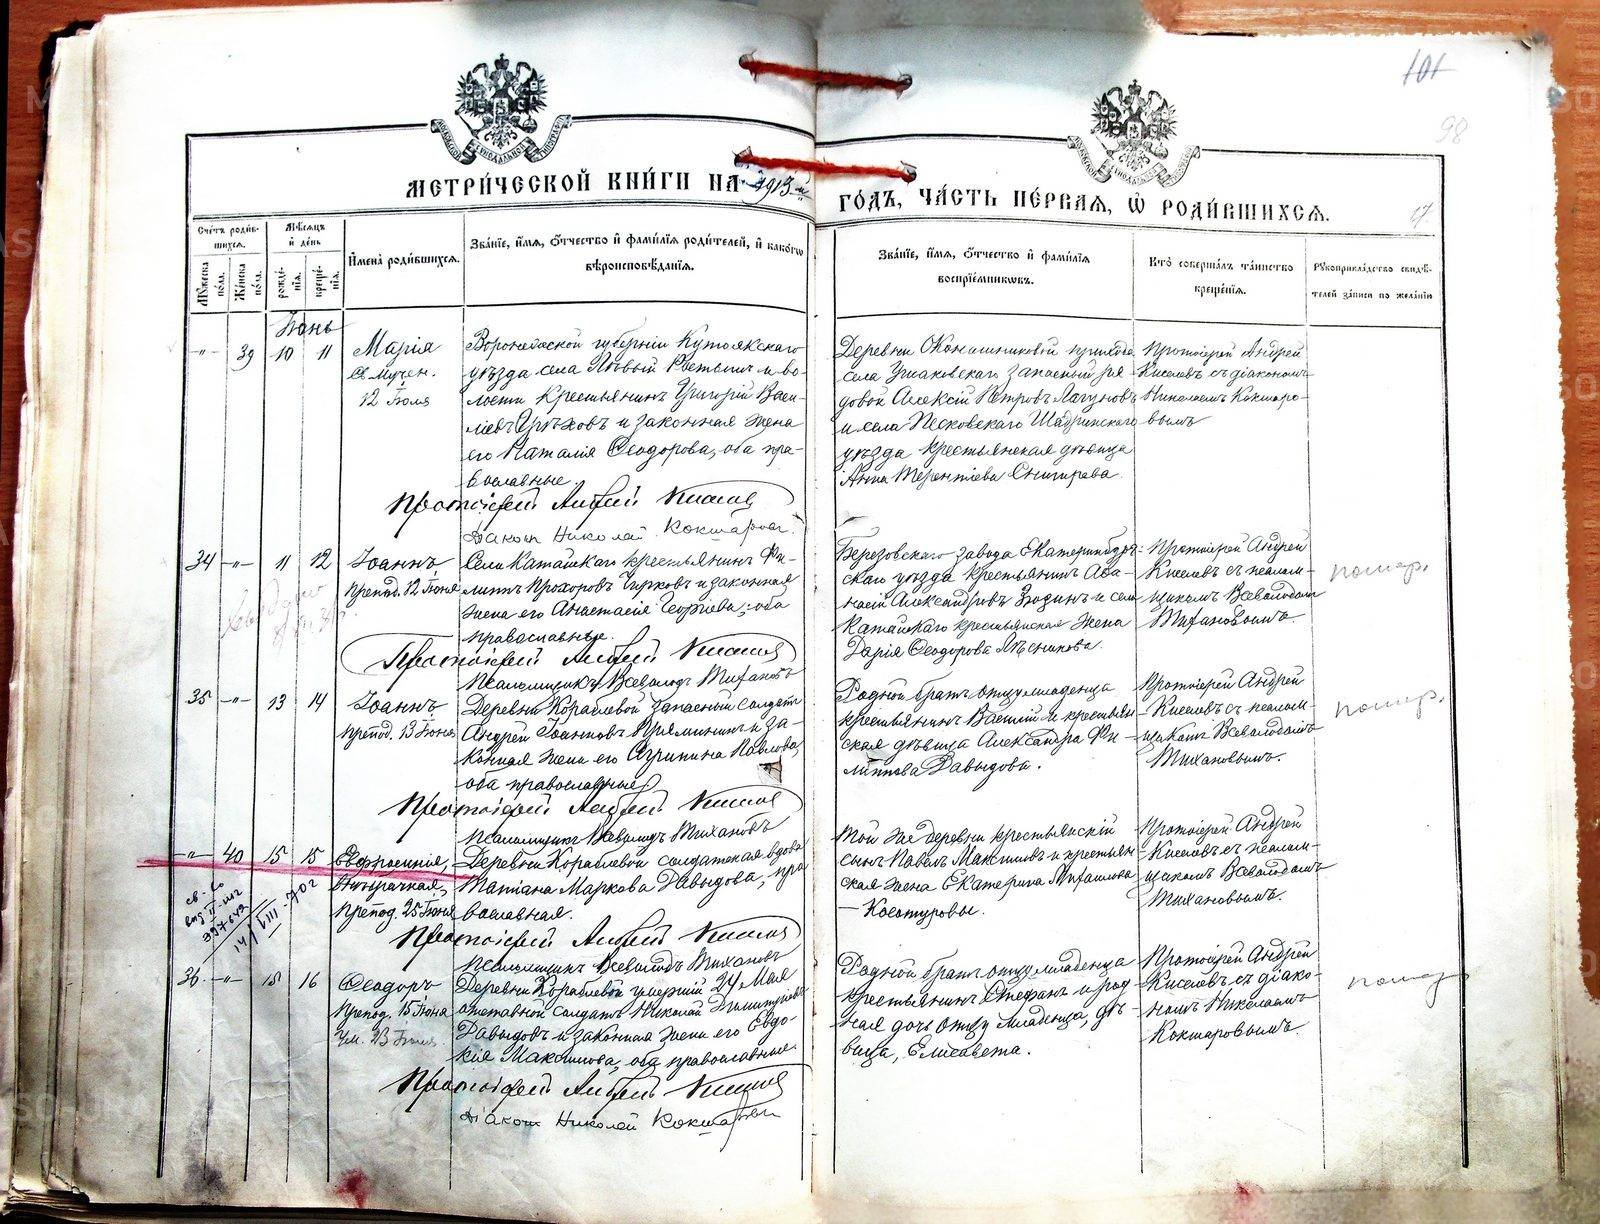 101
98
МЕТРИ́ЧЕСКОЙ КНИ́ГИ НА 1913 й
ГО́ДЪ, ЧА́СТЬ ПЕ́РВАЯ, Ѡ҆ РОДИ́ВШИХСѦ.
17
Сче́тъ роди́в-
шихсѧ.
Мѣ́сѧцъ
и҆ де́нь
Мꙋ́жеска по́ла.
Же́нска по́ла.
рожде́-
нїѧ.
креще́-
нїѧ.
И҆мена̀ роди́вшихсѧ.
Зва́нїе, и҆́мѧ, ѻ҆́тчество и҆ фами́лїѧ роди́телей, и҆ како́гѡ
вѣроисповѣ́данїѧ.
Зва́нїе, и҆́мѧ, ѻ҆́тчество и҆ фами́лїѧ
воспрїе́мникѡвъ.
Кто̀ соверша́лъ та́инство
креще́нїѧ.
Рꙋкоприкла́дство свидѣ́-
телей за́писи по жела́нїю
Іюнь
-"- 39 10 11
Марія
св. мучен.
12 Іюля
Воронежской губерніи Кутоякскаго
уѣзда села
лости крестьянинъ Григорій Васи-
льевъ и законная жена
его Наталія Ѳеодорова, оба пра-
вославные.
Протоіерей Андрей Киселевъ
Діаконъ Николай Кокшаровъ
Деревни прихода
села Ушаковскаго запасный ря-
довой Алексій Петровъ Лагуновъ
и села Песковскаго Шадринскаго
уѣзда крестьянская дѣвица
Анна Терентіева Снигирева.
Протоіерей Андрей
Киселевъ съ діакономъ
Николаемъ Кокшаро-
вымъ
34 -"- 11 12
Іоаннъ
препод. 12 Іюня
Села Катайскаго крестьянинъ Фи-
липпъ Прохоровъ Чирковъ и законная
жена его Анастасія Георгіева, оба
православные.
Протоіерей Андрей Киселевъ
Псаломщикъ Всеволодъ Тихановъ
Березовскаго завода Екатеринбург-
скаго уѣзда крестьянинъ Аѳа-
насій Александровъ и села
Катайскаго крестьянская жена
Дарія Ѳеодорова
Протоіерей Андрей
Киселевъ съ псалом-
щикомъ Всеволодомъ
Тихановымъ.
помер.
35 -"- 13 14
Іоаннъ
препод. 13 Іюня
Деревни Кораблевой запасный солдатъ
Андрей Іоанновъ и за-
конная жена его Агрипина Павлова,
оба православные
Протоіерей Андрей Киселевъ
Псаломщикъ Всеволодъ Тихановъ
Родной братъ отцу младенца
крестьянинъ Василій и крестьян-
ская дѣвица Александра Фи-
липпова Давыдова.
Протоіерей Андрей
Киселевъ съ псалом-
щикомъ Всеволодомъ
Тихановымъ.
помер.
-"- 40 15 15
Евфросинія,
внѣбрачная,
препод. 25 Іюня
св-во
397642
14/VIII-70г
Деревни Кораблевой солдатская вдова
Татіана Маркова Давыдова, пра-
вославная.
Протоіерей Андрей Киселевъ
Псаломщикъ Всеволодъ Тихановъ
Той же деревни крестьянскій
сынъ Павелъ Максимовъ и крестьян-
ская жена Екатерина
— Косотуровы.
Протоіерей Андрей
Киселевъ съ псалом-
щикомъ Всеволодомъ
Тихановымъ.
36 -"- 15 16
Ѳеодоръ
препод. 15 Іюня
ум. 23 Іюля
Деревни Кораблевой умершій 24 Мая
отставной солдатъ Николай Димитріевъ
Давыдовъ и законная жена его Евдо-
кія Максимова, оба православные
Протоіерей Андрей Киселевъ
Діаконъ Николай Кокшаровъ
Родной братъ отцу младенца
крестьянинъ Стефанъ и род-
ная дочь отцу младенца, дѣ-
вица, Елисавета.
Протоіерей Андрей
Киселевъ съ діако-
номъ Николаемъ
Кокшаровымъ.
помер